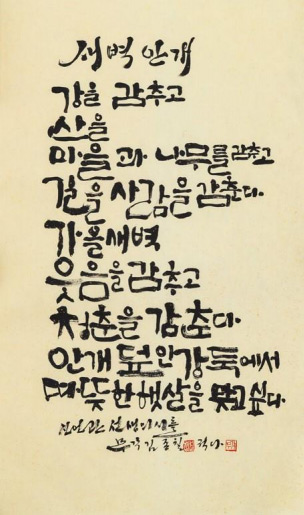 새벽 안개
강을 감추고
산을
마을과 나무를 감추고
길을 사람을 감춘다
가을새벽
웃음을 감추고
청춘을 감춘다
안개 덮인 강둑에서
따뜻한 햇살을 쬐고 싶다
선생의 시를
김종칠 적다